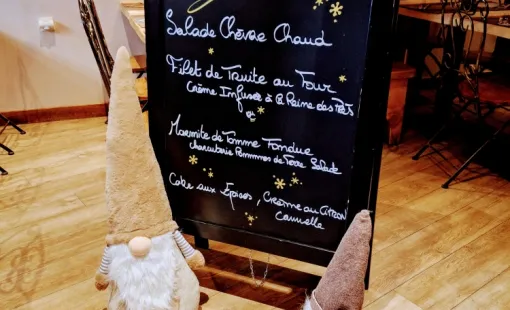 Salade Chèvre Chaud
Filet de Truite au Four
Crème Infusée à la Reine des Prés
ou
Marmite de Tomme Fondue
charcuterie Pommmes de Terre Salade
Cake aux Epices, Creme au CITRON
Cannelle